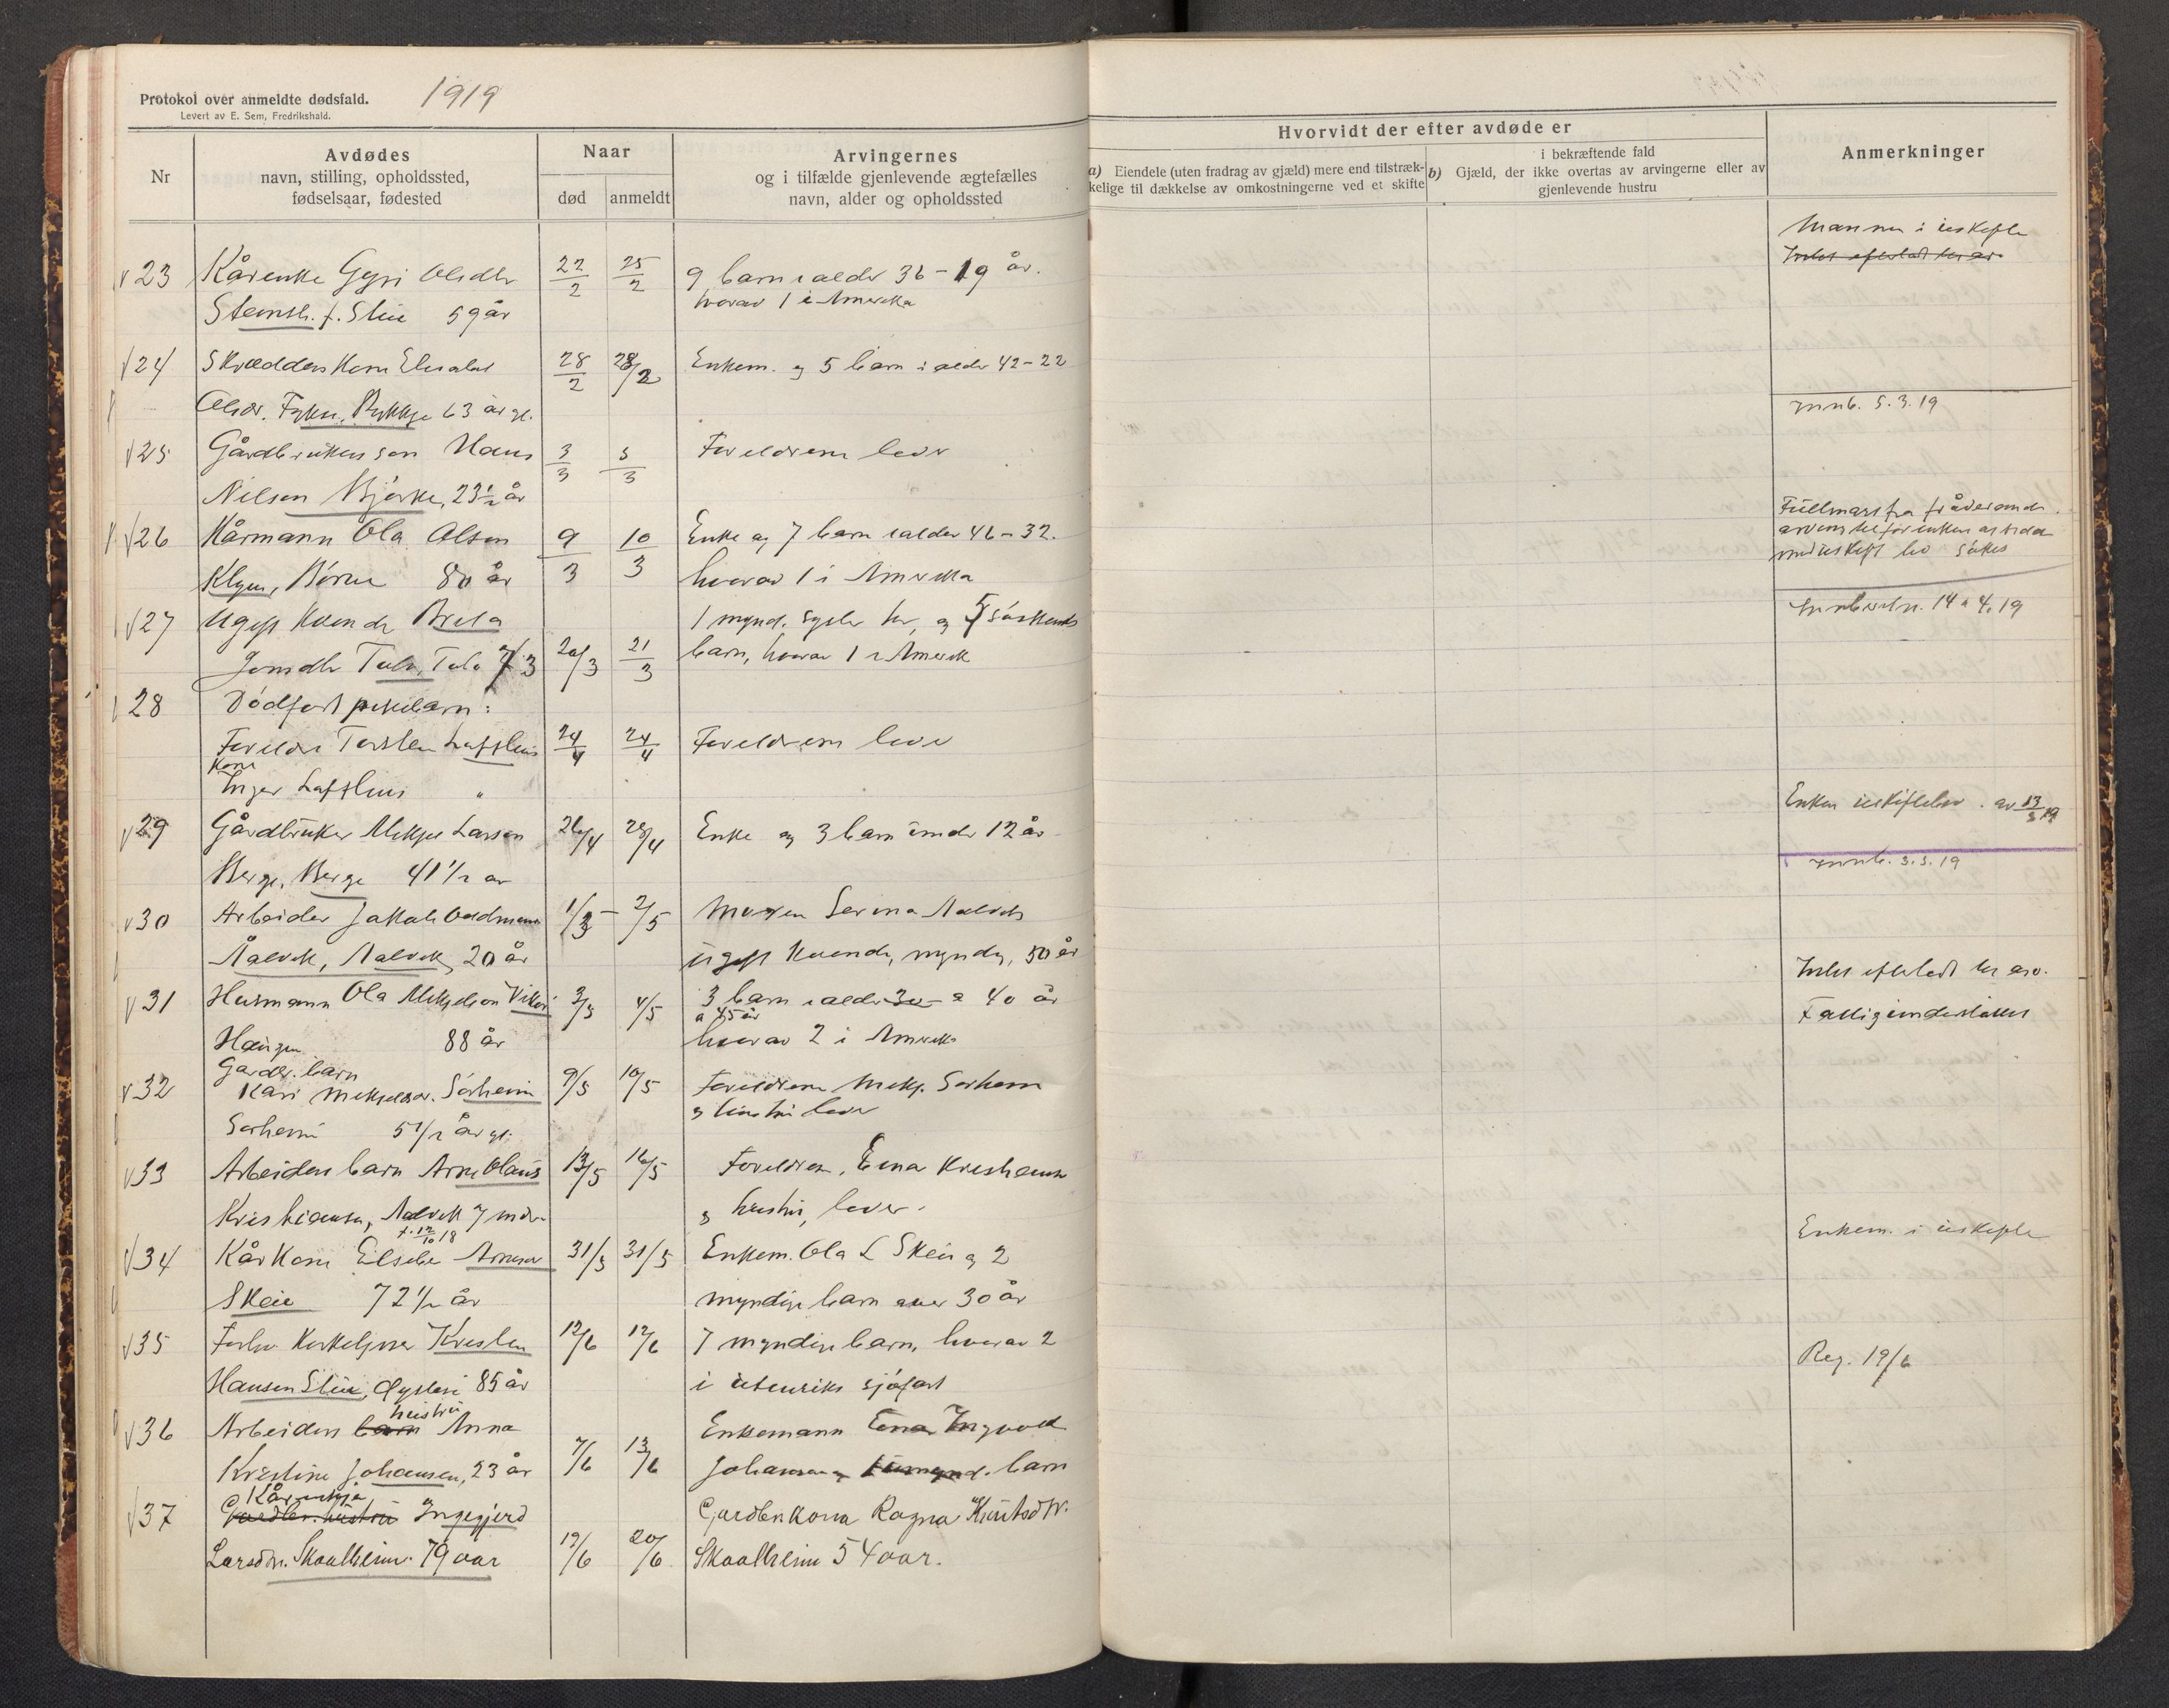 1919
Protokol over anmeldte dødsfald.
Levert av E. Sem, Fredrikshald.
Nr
Avdødes
navn, stilling, opholdssted,
fødselsaar, fødested
Naar
død anmeldt
Arvingernes
og i tilfælde gjenlevende ægtefælles
navn, alder og opholdssted
Hvorvidt der efter avdøde er
a) Eiendele (uten fradrag av gjæld) mere end tilstræk-
kelige til dækkelse av omkostningerne ved et skifte
i bekræftende fald
b) Gjæld, der ikke overtas av arvingerne eller av
gjenlevende hustru
Anmerkninger
23 Kårenke Gyri Olsdtr 22/2 25/2 9 barn i alder 36-19 år.
Steinsl. f. Stue 59 år hvorav 1 i Amerika
24 Skrædders kone 28/2 28/2 Enkem. og 5 barn i alder 42-22
Olsdr. Fyksu, Rykkje 63 år gl.
Innb. 5.3.19
25 Gårdbrukers søn Hans 3/3 5/3 Foreldrene lever
Nilsen Bjørke, 23 1/2 år
26 Kårmann Ola Olsen 9/3 10/3 Enke og 7 barn i alder 46-32.
Klyve, Børve 80 år hvorav 1 i Amerika
27 Ugift kvinde Brita 1 mynd. og 5 søskende
Jonsdtr 73 20/3 21/3 barn, hvorav 1 i Amerik
14 4. 19
28 Dødfødt pikebarn:
Foreldre Torstein Lafthus 24/4 24/4 Foreldrene lever
kone
Inger Lafthus "
29 Gårdbruker Mikjel Larsen 26/4 28/4 Enke og 3 barn under 12 år
Enken uskiftebev. av 13/5 19
Berge, Berge 41 1/2 år
Innb. 3.5.19
30 Arbeider Jakob Oddmann 1/5 - 2/5 Moren Serina Aalvik
Ålvik, Aalvik, 20 år ugift kvinde, myndig, 50 år
Intet efterladt
31 Husmann Ola Mikjelson Vikøi 3/5 4/5 3 barn i alder 30 - a 40 år
a 45 år
Fattigunderstøttet
88 år hvorav 2 i Amerika
Gardbr. barn
32 Kari Mikjelsdr. Sørheim 9/5 10/5 Foreldrene Mikj. Sørheim
og hustru lever
Sørheim 5 1/2 år gl.
33 Arbeiders barn Arne Olaus 13/5 16/5 Foreldrene, Einar Kristiansen
Kristiansen, Aalvik 7 mdr. og hustru, lever.
f. 12/10 18
34 Kårkone Elsebe Arnesdr 31/5 31/5 Enkem. Ola L Skeie og 2
Enkem. i uskifte
Skeie 72 1/2 år myndige barn over 30 år
35 Forhv. Kirketjener Kristen 12/6 12/6 7 myndige barn, hvorav 2
Reg. 19/6
Hansen Stue, Øystese 85 år i utenriks sjøfart
hustru
36 Arbeiders barn Anna Enkemann Einar Ingvald
Kristine Johansen, 23 år 7/6 13/6 Johansen og 1 umynd. barn
Kårenkja
37 Gardbr. hustru Ingegjerd Gardbr.kona Ragna Knutsdtr.
Larsdtr. Skaalheim. 79 aar 19/6 20/6 Skaalheim 54 aar.